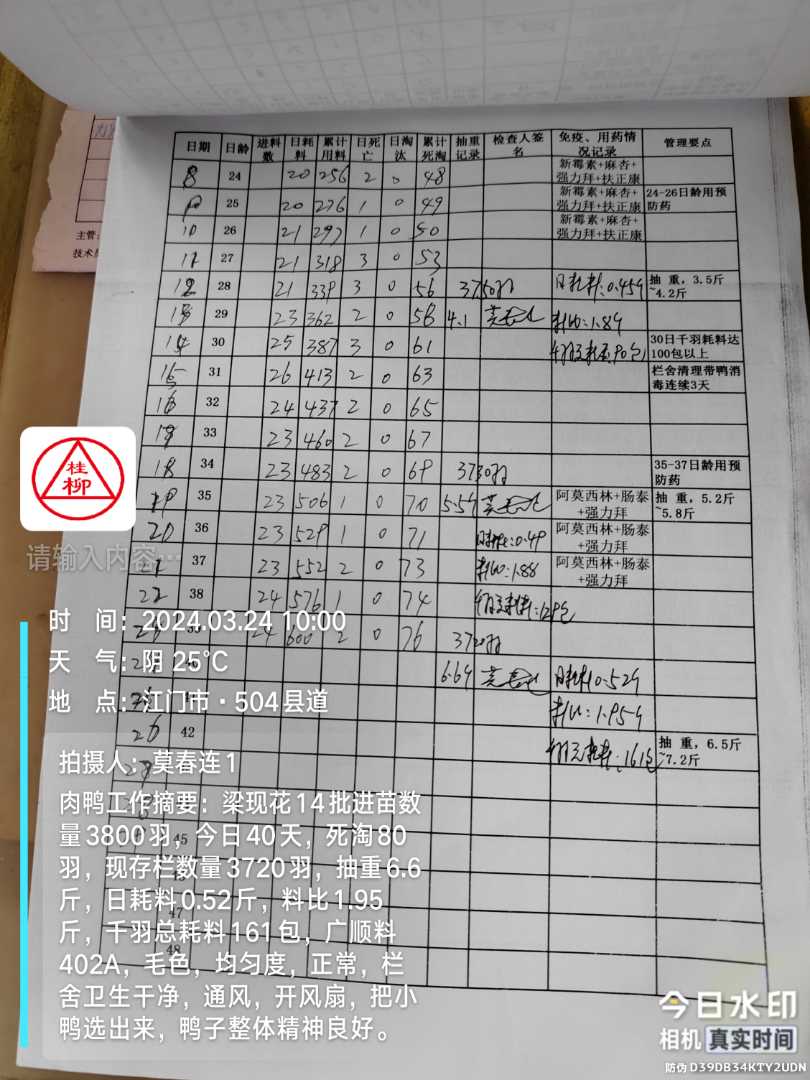 日期 日龄 进料数 日耗料 累计用料 日死亡 日淘汰 累计死淘 抽重记录 检查人签名 免疫、用药情况记录 管理要点
8 24 20 256 2 0 48 新霉素+麻杏+强力拜+扶正康
9 25 20 276 1 0 49 新霉素+麻杏+强力拜+扶正康 24-26日龄用预防药
10 26 21 297 1 0 50 新霉素+麻杏+强力拜+扶正康
11 27 21 318 3 0 53
12 28 21 339 3 0 56 3750羽 日耗料:0.45斤 抽重,3.5斤~4.2斤
13 29 23 362 2 0 58 4.1 料比:1.89
14 30 25 387 3 0 61 30日千羽耗料达100包以上
15 31 26 413 2 0 63 栏舍清理带鸭消毒连续3天
16 32 24 437 2 0 65
17 33 23 460 2 0 67
18 34 23 483 2 0 69 3730羽 35-37日龄用预防药
19 35 23 506 1 0 70 5.5斤 阿莫西林+肠泰+强力拜 抽重,5.2斤~5.8斤
20 36 23 529 1 0 71 阿莫西林+肠泰+强力拜
21 37 23 552 2 0 73 料比:1.88 阿莫西林+肠泰+强力拜
22 38 24 576 1 0 74
24 600 2 0 76 3720羽
6.6斤 日耗料0.52斤
料比:1.95斤
26 42 161包 抽重,6.5斤~7.2斤
45
47
48
主管:
技术员
桂柳
请输入内容…
时 间:2024.03.24 10:00
天 气:阴 25℃
地 点:江门市·504县道
拍摄人:莫春连1
肉鸭工作摘要:梁现花14批进苗数
量3800羽,今日40天,死淘80
羽,现存栏数量3720羽,抽重6.6
斤,日耗料0.52斤,料比1.95
斤,千羽总耗料161包,广顺料
402A,毛色,均匀度,正常,栏
舍卫生干净,通风,开风扇,把小
鸭选出来,鸭子整体精神良好。
今日水印
相机 真实时间
防伪 D39DB34KTY2UDN